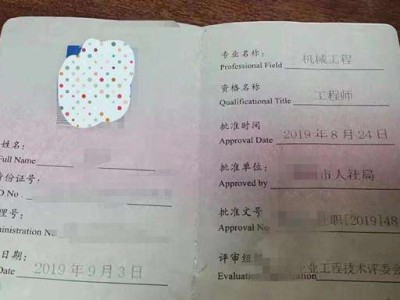 姓名:
Full Name
身份证号:
ID No.
管理号:
Administration No.
日期:
Date 2019年9月3日
专业名称: 机械工程
Professional Field
资格名称 工程师
Qualificational Title
批准时间 2019年8月24日
Approval Date
批准单位: 市人社局
Approved by
批准文号 职[2019]48
Approval No
评审组
Evaluation 业工程技术评委会